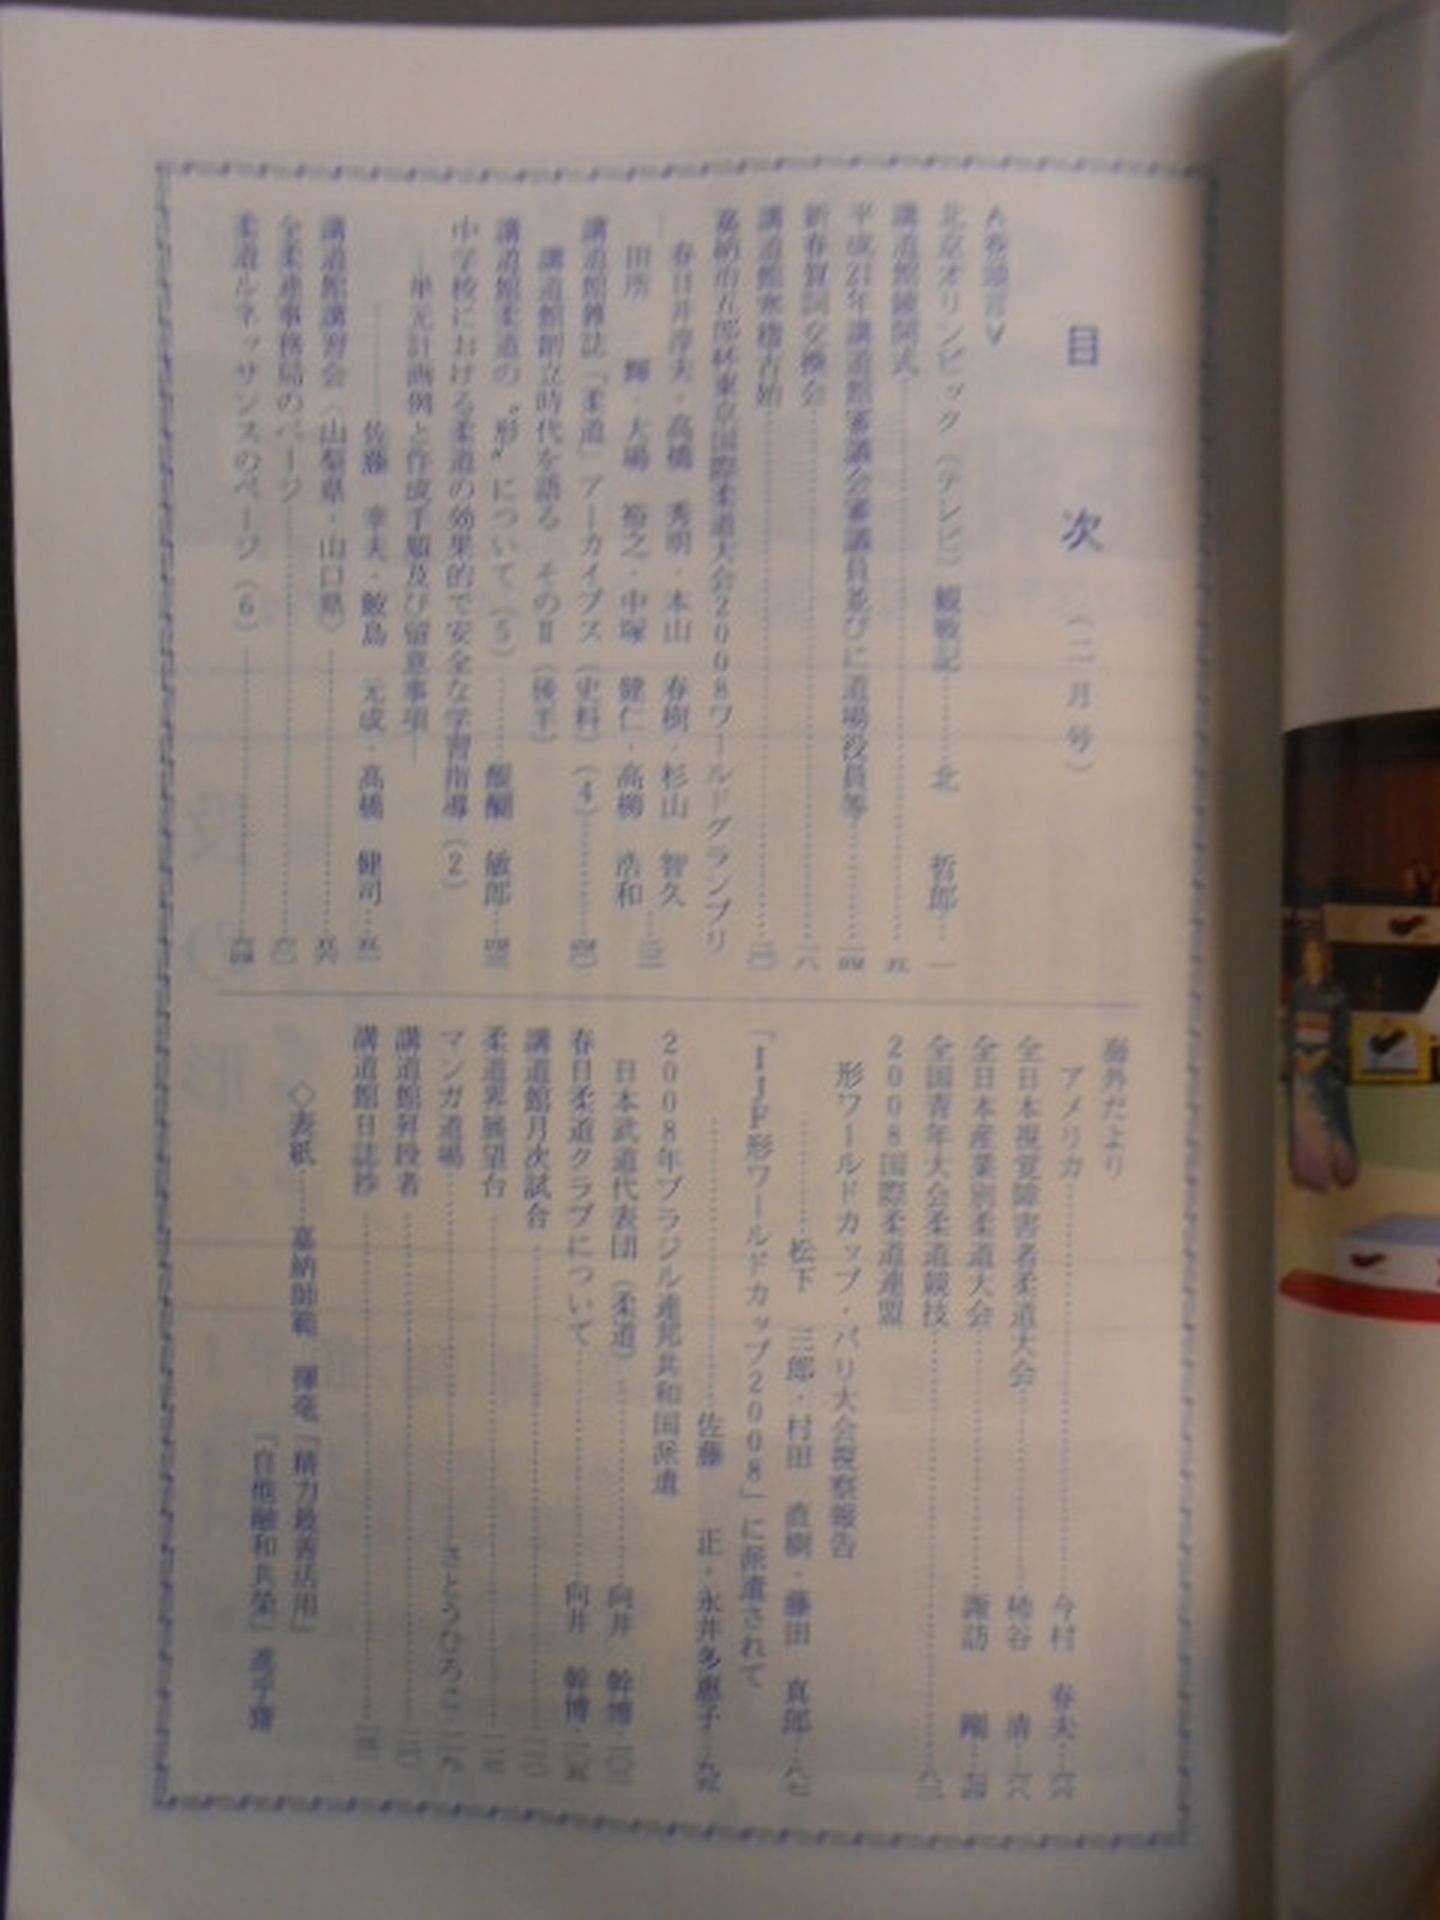 目次（二月号）
＜巻頭言＞
北京オリンピック（テレビ）観戦記………北 哲郎…一
講道館鏡開式………五
平成21年講道館審議会審議員並びに道場役員等………一四
新春賀詞交換会………一八
講道館寒稽古始………二〇
嘉納治五郎杯東京国際柔道大会2008ワールドグランプリ
…春日井淳夫・高橋 秀明・本山 春樹・杉山 智久
田所 輝・大場 裕之・中塚 健仁・高柳 浩和…
講道館雑誌「柔道」アーカイブス（史料）（4）………
講道館創立時代を語る その II（後半）
講道館柔道の〝形〟について（5）………醍醐 敏郎…
中学校における柔道の効果的で安全な学習指導（2）
―単元計画例と作成手順及び留意事項―
………佐藤 幸夫・鮫島 元成・高橋 健司…
講道館講習会（山梨県・山口県）………
全柔連事務局のページ………
柔道ルネッサンスのページ（6）………
海外だより
アメリカ………今村 春夫…
全日本視覚障害者柔道大会………柿谷 清…
全日本産業別柔道大会………諏訪 剛…
全国青年大会柔道競技………
2008国際柔道連盟
形ワールドカップ・パリ大会視察報告
………松下 三郎・村田 直樹・藤田 真郎…
「IJF形ワールドカップ2008」に派遣されて
………佐藤 正・永井多惠子…
2008年ブラジル連邦共和国派遣
日本武道代表団（柔道）………向井 幹博…
春日柔道クラブについて………向井 幹博…
講道館月次試合………
柔道界展望台………
マンガ道場………さとうひろこ…
講道館昇段者………
講道館日誌抄………
◇表紙……嘉納師範 揮毫「精力最善活用」
「自他融和共栄」進乎齋